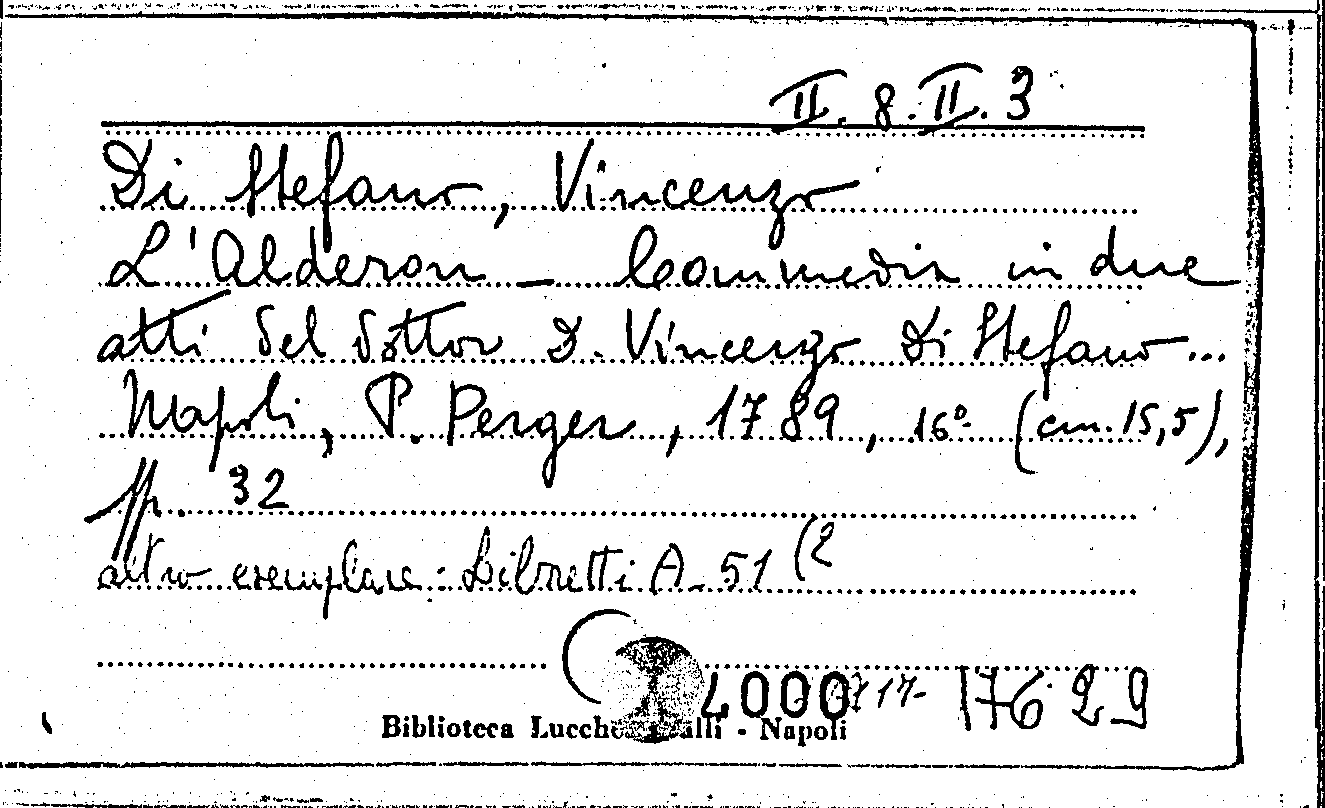 II. 8. II. 3
Di Stefano, Vincenzo
L'Alderon _ Commedia in due
atti del dottor D. Vincenzo Di Stefano...
Napoli, P. Perger, 1789, 16°. (cm. 15,5),
pp. 32
altro esemplare: Libretti A. 51 (2
17629
Biblioteca - Napoli